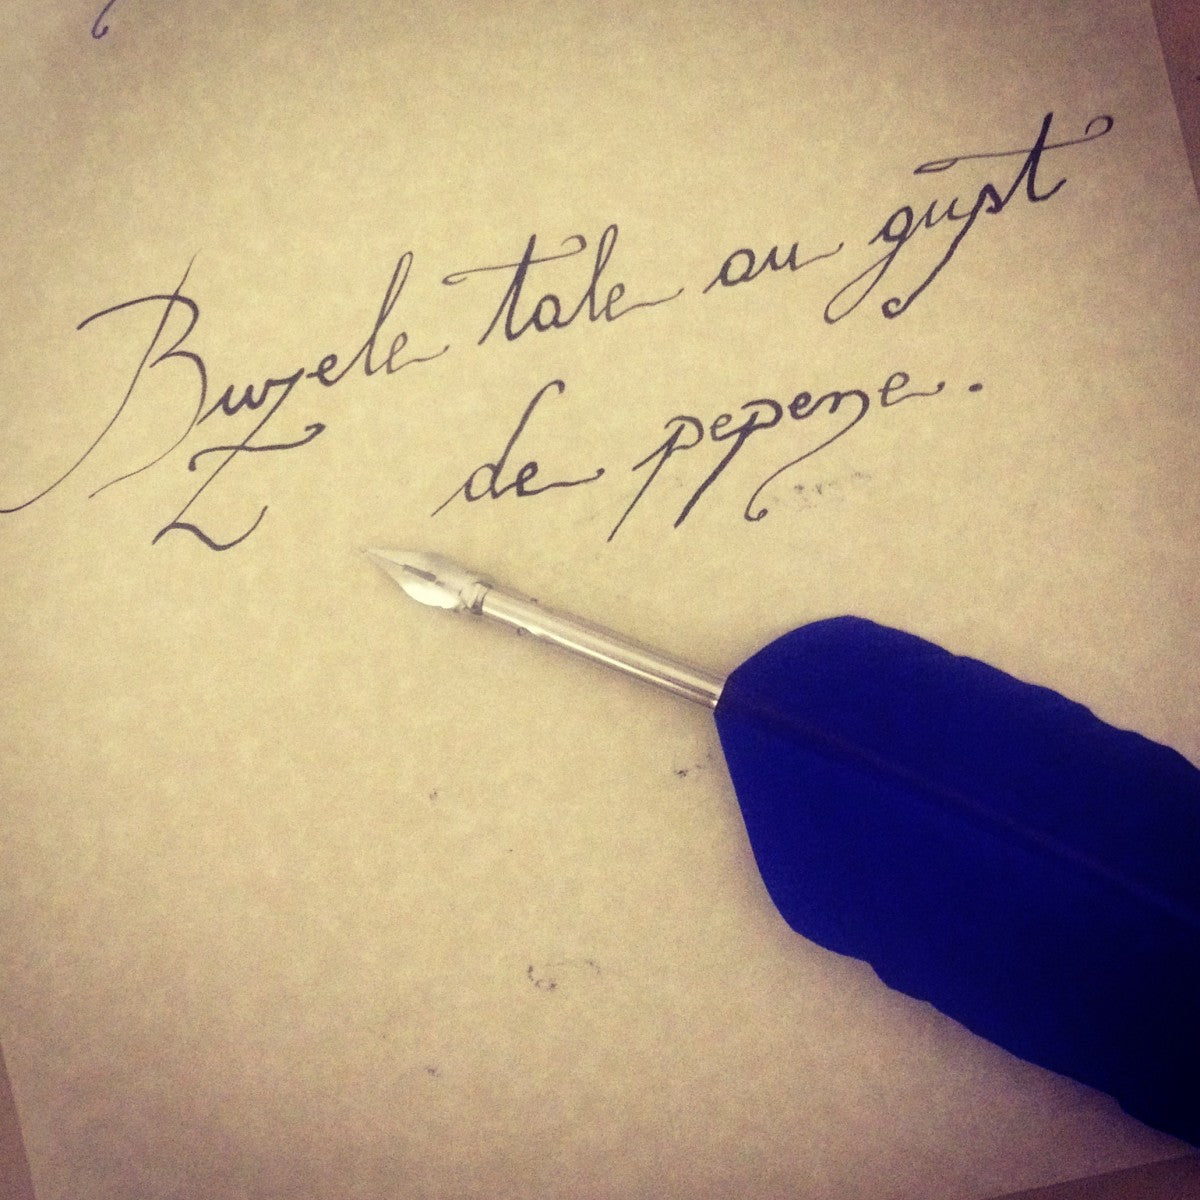 Buzele tale au gust
de pepene.
Z